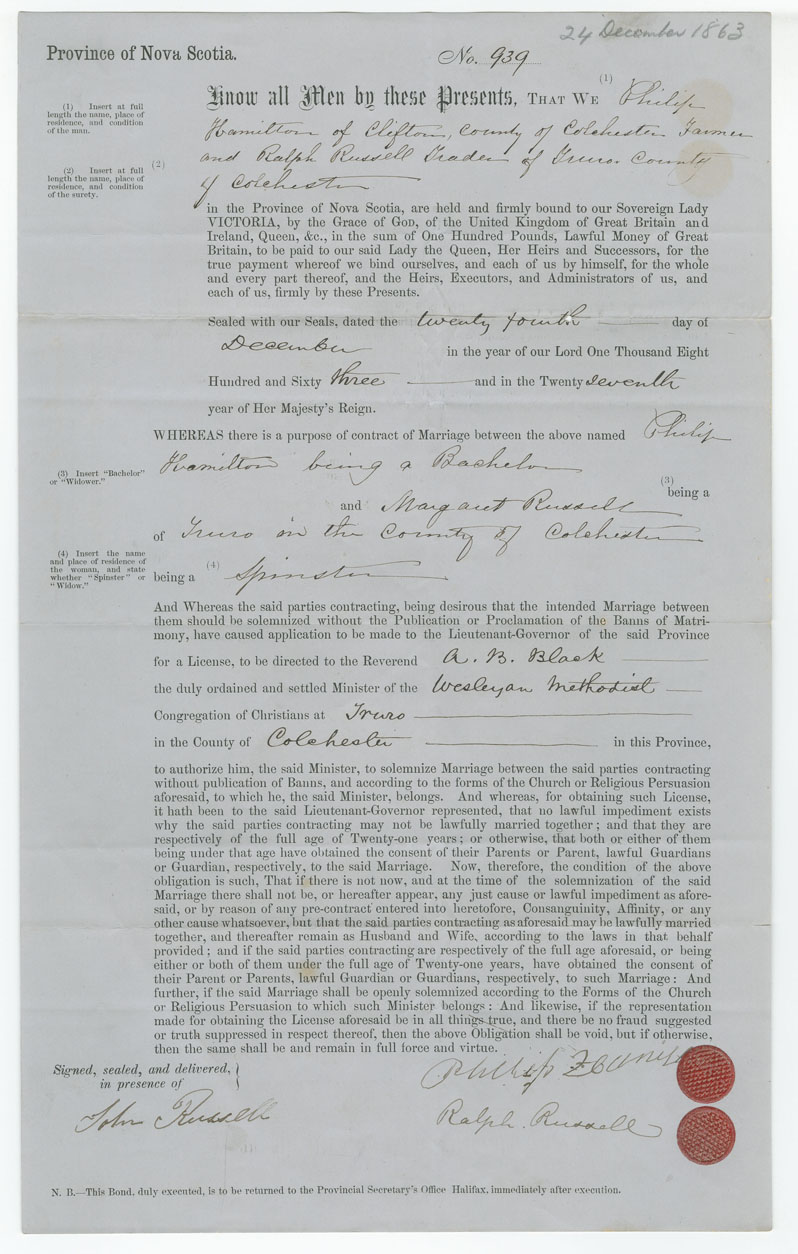 24 December 1863
Province of Nova Scotia.
No. 939
(1)
Know all Men by these Presents, THAT WE Philip
(1) Insert at full
length the name, place of
residence, and condition
of the man.
Hamilton of Clifton, County of Colchester Farmer
(2) Insert at full
length the name, place of
residence, and condition
of the surety.
(2)
and Ralph Russell Trader of Truro County
of Colchester
in the Province of Nova Scotia, are held and firmly bound to our Sovereign Lady
VICTORIA, by the Grace of GOD, of the United Kingdom of Great Britain and
Ireland, Queen, &c., in the sum of One Hundred Pounds, Lawful Money of Great
Britain, to be paid to our said Lady the Queen, Her Heirs and Successors, for the
true payment whereof we bind ourselves, and each of us by himself, for the whole
and every part thereof, and the Heirs, Executors, and Administrators of us, and
each of us, firmly by these Presents.
Sealed with our Seals, dated the twenty fourth day of
December in the year of our Lord One Thousand Eight
Hundred and Sixty three and in the Twenty seventh
year of Her Majesty's Reign.
WHEREAS there is a purpose of contract of Marriage between the above named Philip
(3) Insert "Bachelor"
or "Widower."
Hamilton being a Bachelor
(3)
being a
and Margaret Russell
of Truro in the County of Colchester
(4) Insert the name
and place of residence of
the woman, and state
whether "Spinster" or
"Widow."
being a (4) Spinster
And Whereas the said parties contracting, being desirous that the intended Marriage between
them should be solemnized without the Publication or Proclamation of the Banns of Matri-
mony, have caused application to be made to the Lieutenant-Governor of the said Province
for a License, to be directed to the Reverend A. B. Black
the duly ordained and settled Minister of the Wesleyan Methodist
Congregation of Christians at Truro
in the County of Colchester in this Province,
to authorize him, the said Minister, to solemnize Marriage between the said parties contracting
without publication of Banns, and according to the forms of the Church or Religious Persuasion
aforesaid, to which he, the said Minister, belongs. And whereas, for obtaining such License,
it hath been to the said Lieutenant-Governor represented, that no lawful impediment exists
why the said parties contracting may not be lawfully married together; and that they are
respectively of the full age of Twenty-one years; or otherwise, that both or either of them
being under that age have obtained the consent of their Parents or Parent, lawful Guardians
or Guardian, respectively, to the said Marriage. Now, therefore, the condition of the above
obligation is such, That if there is not now, and at the time of the solemnization of the said
Marriage there shall not be, or hereafter appear, any just cause or lawful impediment as afore-
said, or by reason of any pre-contract entered into heretofore, Consanguinity, Affinity, or any
other cause whatsoever, but that the said parties contracting as aforesaid may be lawfully married
together, and thereafter remain as Husband and Wife, according to the laws in that behalf
provided; and if the said parties contracting are respectively of the full age aforesaid, or being
either or both of them under the full age of Twenty-one years, have obtained the consent of
their Parent or Parents, lawful Guardian or Guardians, respectively, to such Marriage: And
further, if the said Marriage shall be openly solemnized according to the Forms of the Church
or Religious Persuasion to which such Minister belongs: And likewise, if the representation
made for obtaining the License aforesaid be in all things true, and there be no fraud suggested
or truth suppressed in respect thereof, then the above Obligation shall be void, but if otherwise,
then the same shall be and remain in full force and virtue.
Signed, sealed, and delivered,
in presence of
Phillip
John Russell
Ralph Russell
N. B.—This Bond, duly executed, is to be returned to the Provincial Secretary's Office Halifax, immediately after execution.